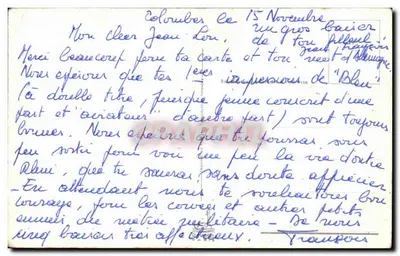 Colombes le 15 Novembre
Mon cher Jean Lou.
Un gros baiser
de ton filleul
Jean François
Merci beaucoup pour ta carte et ton mot d'Allemagne
Nous espérons que tes 1ères impressions de "Bleu"
(à double titre, puisque jeune conscrit d'une
part et aviateur d'autre part) sont toujours
bonnes. Nous espérons que tu pourras sous
peu sortir pour voir un peu la vie d'outre
Rhin, que tu sauras sans doute apprécier
- En attendant nous te souhaitons bon
courage, pour les corvées et autres petits
ennuis du métier militaire - Je nous
baisers très affectueux.
François